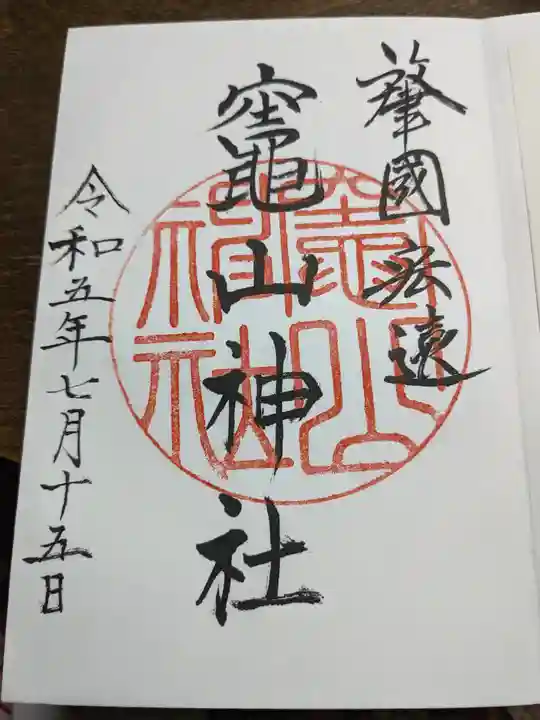 肇國宏遠
竈山神社
令和五年七月十五日
竈山神社